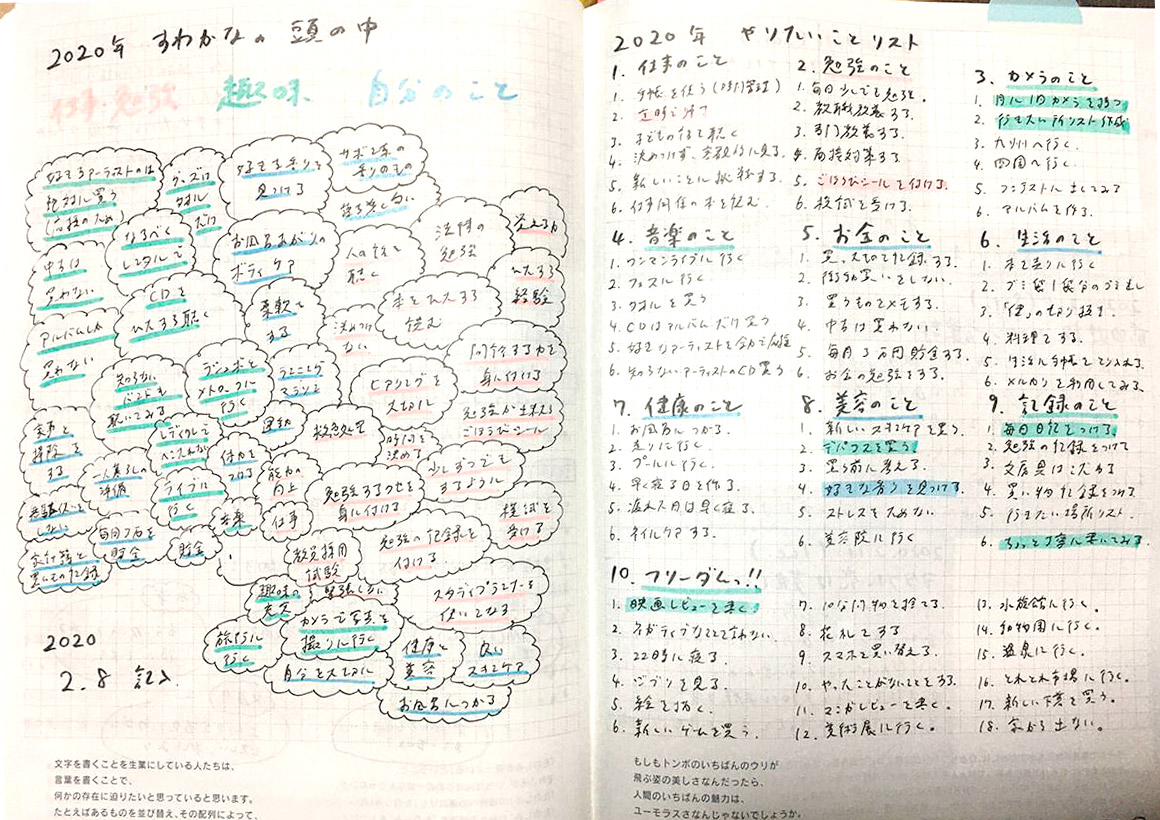 2020年 すわかなの 頭の中
仕事・勉強 趣味 自分のこと
好きなアーティストのは
絶対に買う
(応援のため)
グッズは
タオル
だけ
好きな香りを
見つける
サボン系の
香りのもの
なるべく
レンタルで
お風呂あがりの
ボディケア
人の話を
聴く
法律の
勉強
考える力
中古は
買わない
CDを
たくさん聴く
柔軟を
する
本をたくさん
読む
たくさん
経験
アルバムしか
買わない
決めつけ
ない
知らない
バンドも
聴いてみる
ランニング
マシン
ヒアリングを
大切に
身に付ける
家事と
掃除を
する
運動
救急処置
時間を
決める
勉強が出来たら
ごほうびシール
一人暮らしの
準備
ライブに
行く
体力を
つける
能力の
向上
勉強するくせを
身に付ける
少しずつでも
するように
毎月3万を
貯金
貯金
音楽
仕事
模試を
受ける
買いもの記録
教員採用
試験
勉強の記録を
付ける
趣味の
充実
緊張しない
スタディプランナーを
使いこなす
旅行に
行く
カメラで写真を
撮りに行く
健康と
美容
良い
スキンケア
自分を大切に
お風呂につかる
2020
2.8 記入
文字を書くことを生業にしている人たちは、
言葉を書くことで、
何かの存在に迫りたいと思っていると思います。
たとえばあるものを並び替え、その配列によって、
2020年 やりたいことリスト
1. 仕事のこと
1. 手帳を使う(時間管理)
2. 定時で帰る
3. 子どもの話を聴く
4. 決めつけず、客観的に見る
5. 新しいことに挑戦する
6. 仕事関係の本を読む
2. 勉強のこと
1. 毎日少しでも勉強。
2. 教職教養する。
3. 専門教養する。
4. 面接対策する
5. ごほうびシールを付ける。
6. 模試を受ける。
3. カメラのこと
1. 月に1日カメラを持つ
2. 行きたい所リスト作成
3. 九州へ行く。
4. 四国へ行く。
5. コンテストに出してみる
6. アルバムを作る。
4. 音楽のこと
1. ワンマンライブに行く
2. フェスに行く。
3. タオルを買う
4. CDはアルバムだけ買う
5. 好きなアーティストを全力で応援
6. 知らないアーティストのCD買う
5. お金のこと
1. 買ったものを記録する。
2. 衝動買いをしない。
3. 買うものをメモする。
4. 中古は買わない。
5. 毎月3万円貯金する。
6. お金の勉強をする。
6. 生活のこと
1. 本を売りに行く
2. ゴミ袋1袋分のゴミ出し
3. 「使」の切り抜き。
4. 料理をする。
5. 生活に手帳をとり入れる。
6. メルカリを利用してみる。
7. 健康のこと
1. お風呂につかる。
2. 走りに行く。
3. プールに行く。
4. 早く寝る日を作る。
5. 疲れた日は早く寝る。
6. ネイルケアする。
8. 美容のこと
1. 新しいスキンケアを買う
2. デパコスを買う
3. 買う前に考える。
4. 好きな香りを見つける。
5. ストレスをためない
6. 美容院に行く
9. 記録のこと
1. 毎日日記をつける。
2. 勉強の記録をつける
3. 文房具はこだわる
4. 買い物記録をつける
5. 行きたい場所リスト。
6. もっと丁寧に書いてみる。
10. フリーダムっ!!
1. 映画レビューを書く。
2. ネガティブなことを言わない。
3. 22時に寝る。
4. ジブリを見る。
5. 絵を描く。
6. 新しいゲームを買う。
7. 10な月物を捨てる。
8. 花札をする
9. スマホを買い替える。
10. やったことがないことをする。
11. マンガレビューを書く。
12. 美術展に行く。
13. 水族館に行く。
14. 動物園に行く。
15. 温泉に行く。
16. とれとれ市場に行く。
17. 新しい下着を買う。
18. 家から出ない。
もしもトンボのいちばんのウリが
飛ぶ姿の美しさなんだったら、
人間のいちばんの魅力は、
ユーモラスさなんじゃないでしょうか。